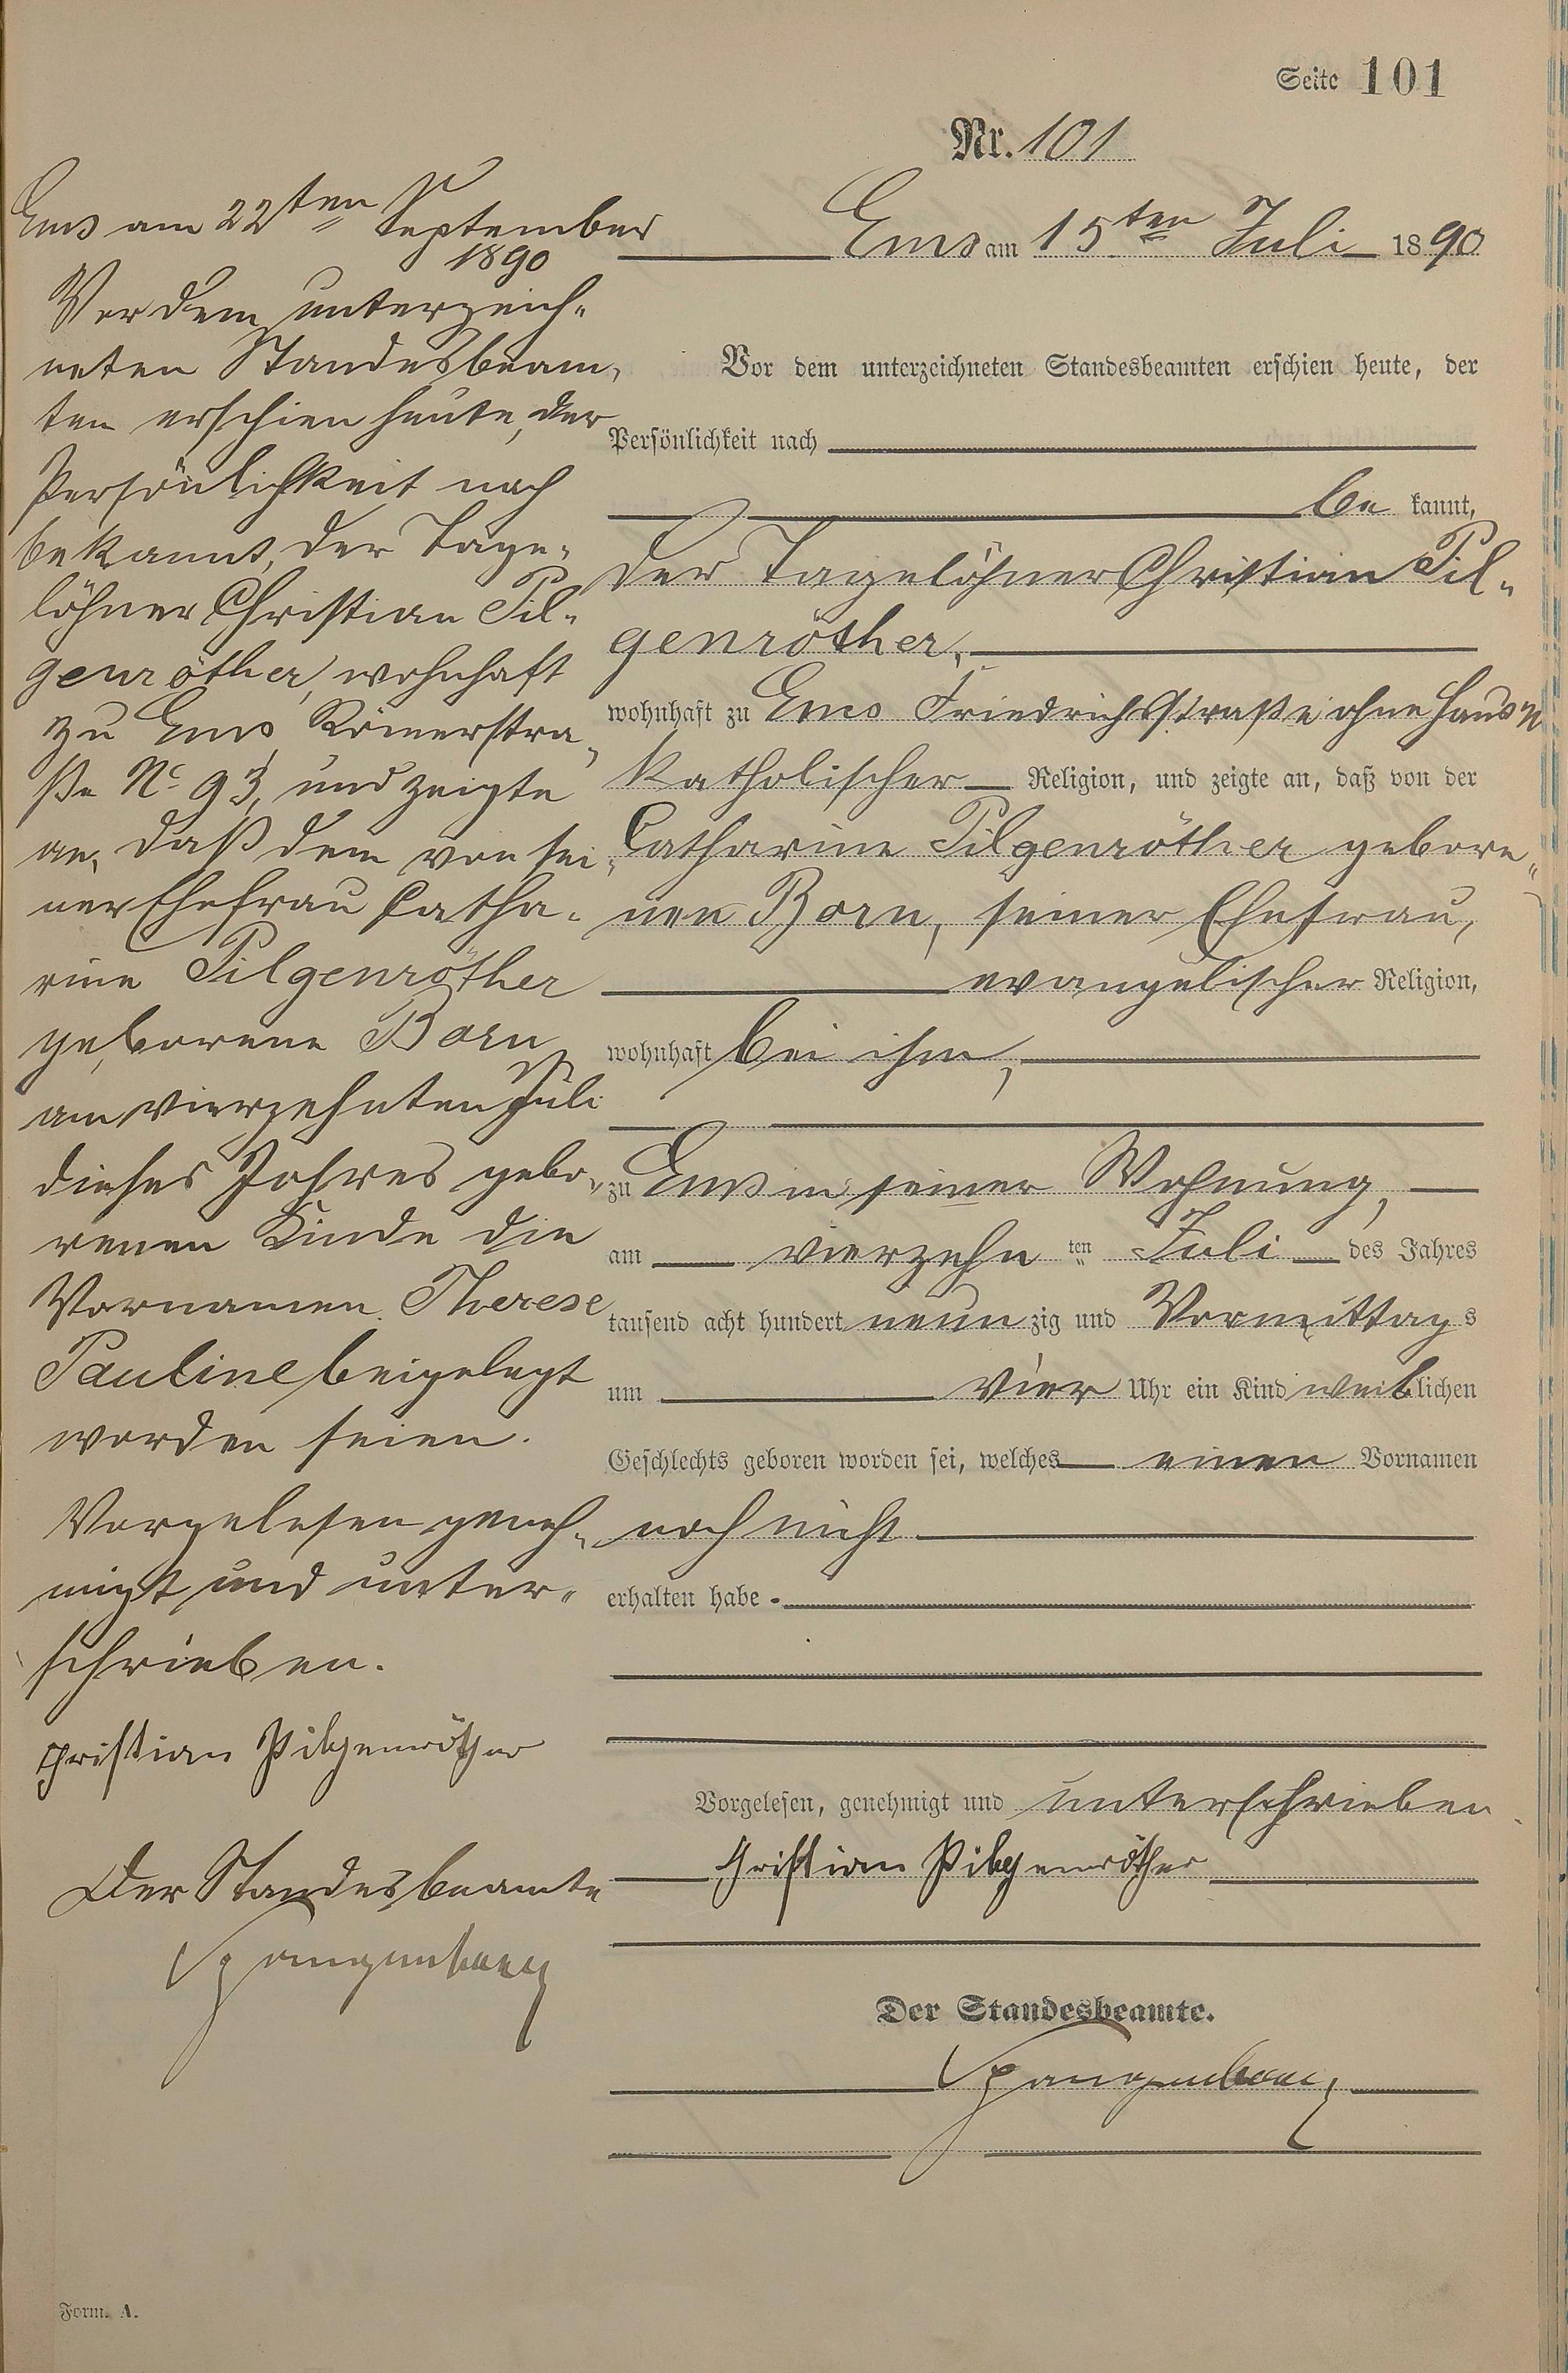 Seite 101
Nr. 101
Ems am 15ten Juli 1890
Vor dem unterzeichneten Standesbeamten erschien heute, der
Persönlichkeit nach
be kannt,
der Tagelöhner Christian Pil-
genröther,
wohnhaft zu Ems Friedrichsstraße ohne Haus N
katholischer Religion, und zeigte an, daß von der
Catharine Pilgenröther gebore-
nen Born, seiner Ehefrau,
evangelischer Religion,
wohnhaft bei ihm,
zu Ems in seiner Wohnung,
am vierzehn ten Juli des Jahres
tausend acht hundert neun zig und Vormittags
um vier Uhr ein Kind weiblichen
Geschlechts geboren worden sei, welches einen Vornamen
noch nicht
erhalten habe.
Vorgelesen, genehmigt und unterschrieben
Christian Pilgenröther
Der Standesbeamte.
Spangenberg
Ems am 22ten September
1890
Vor dem unterzeich-
neten Standesbeam-
ten erschien heute, der
Persönlichkeit nach
bekannt, der Tage-
löhner Christian Pil-
genröther, wohnhaft
zu Ems, Römerstra-
ße No 93, und zeigte
an, daß dem von sei-
ner Ehefrau Catha-
rine Pilgenröther
geborene Born
am vierzehnten Juli
dieses Jahres gebo-
renen Kinde die
Vornamen Therese
Pauline beigelegt
worden seien.
Vorgelesen geneh-
migt und unter-
schrieben.
Christian Pilgenröther
Der Standesbeamte
Spangenberg
Form. A.